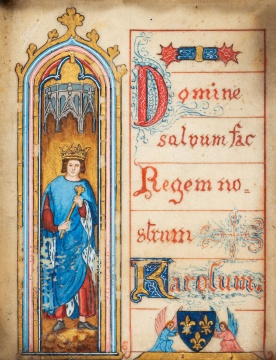 Domine
salvum fac
Regem no-
strum
Karolum.